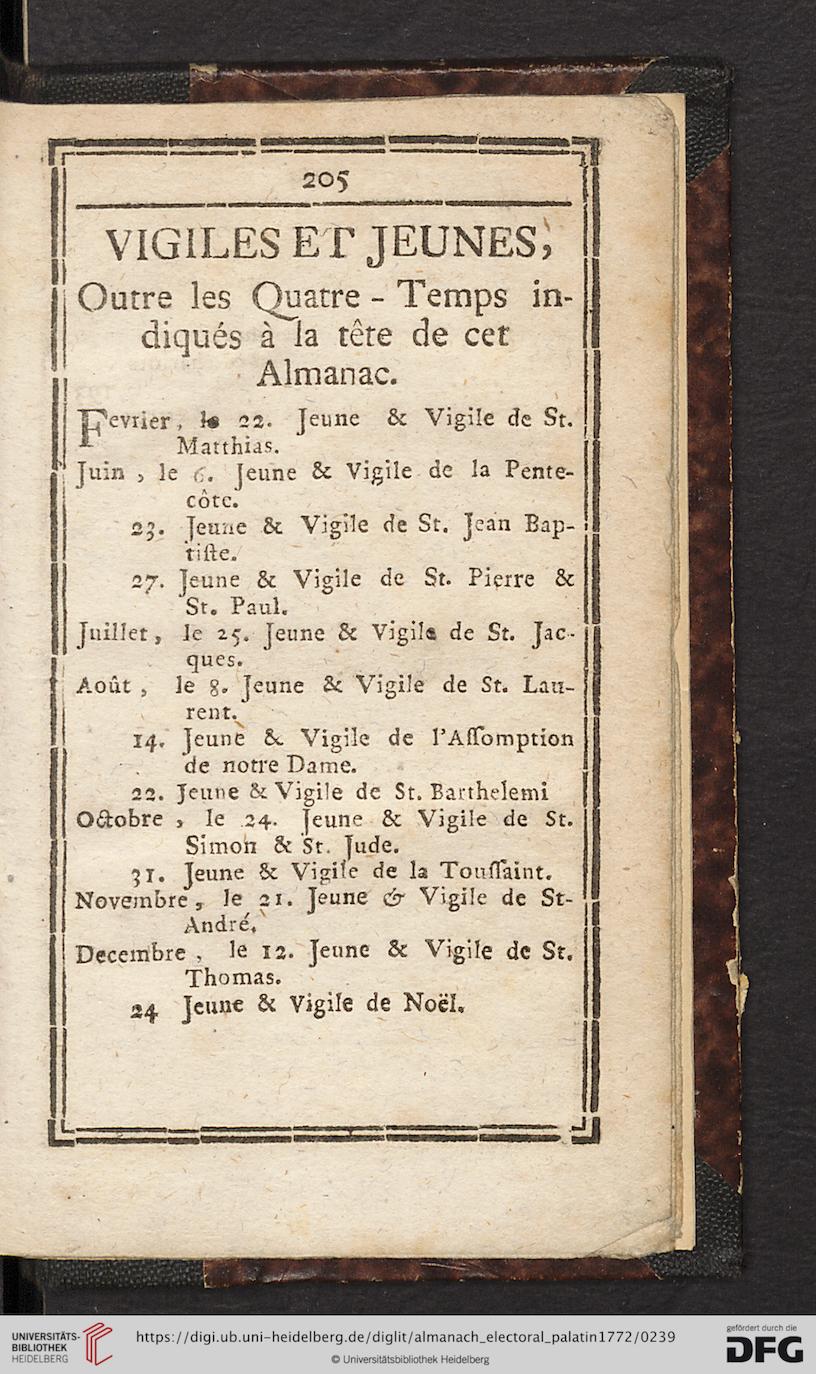 205
VIGILES ET JEUNES,
Outre les Quatre - Temps in-
diqués à la tête de cet
Almanac.
Fevrier, le 22. Jeune & Vigile de St.
Matthias.
Juin , le 6. Jeune & Vigile de la Pente-
côte.
23. Jeune & Vigile de St. Jean Bap-
tiſte.
27. Jeune & Vigile de St. Pierre &
St. Paul.
Juillet, le 25. Jeune & Vigile de St. Jac-
ques.
Août , le 8. Jeune & Vigile de St. Lau-
rent.
14. Jeune & Vigile de l'Aſſomption
de notre Dame.
22. Jeune & Vigile de St. Barthelemi
Octobre , le 24. Jeune & Vigile de St.
Simon & St. Jude.
31. Jeune & Vigile de la Touſſaint.
Novembre, le 21. Jeune & Vigile de St-
André.
Decembre , le 12. Jeune & Vigile de St.
Thomas.
24 Jeune & Vigile de Noël.
UNIVERSITÄTS-
BIBLIOTHEK
HEIDELBERG
https://digi.ub.uni-heidelberg.de/diglit/almanach_electoral_palatin1772/0239
© Universitätsbibliothek Heidelberg
gefördert durch die
DFG